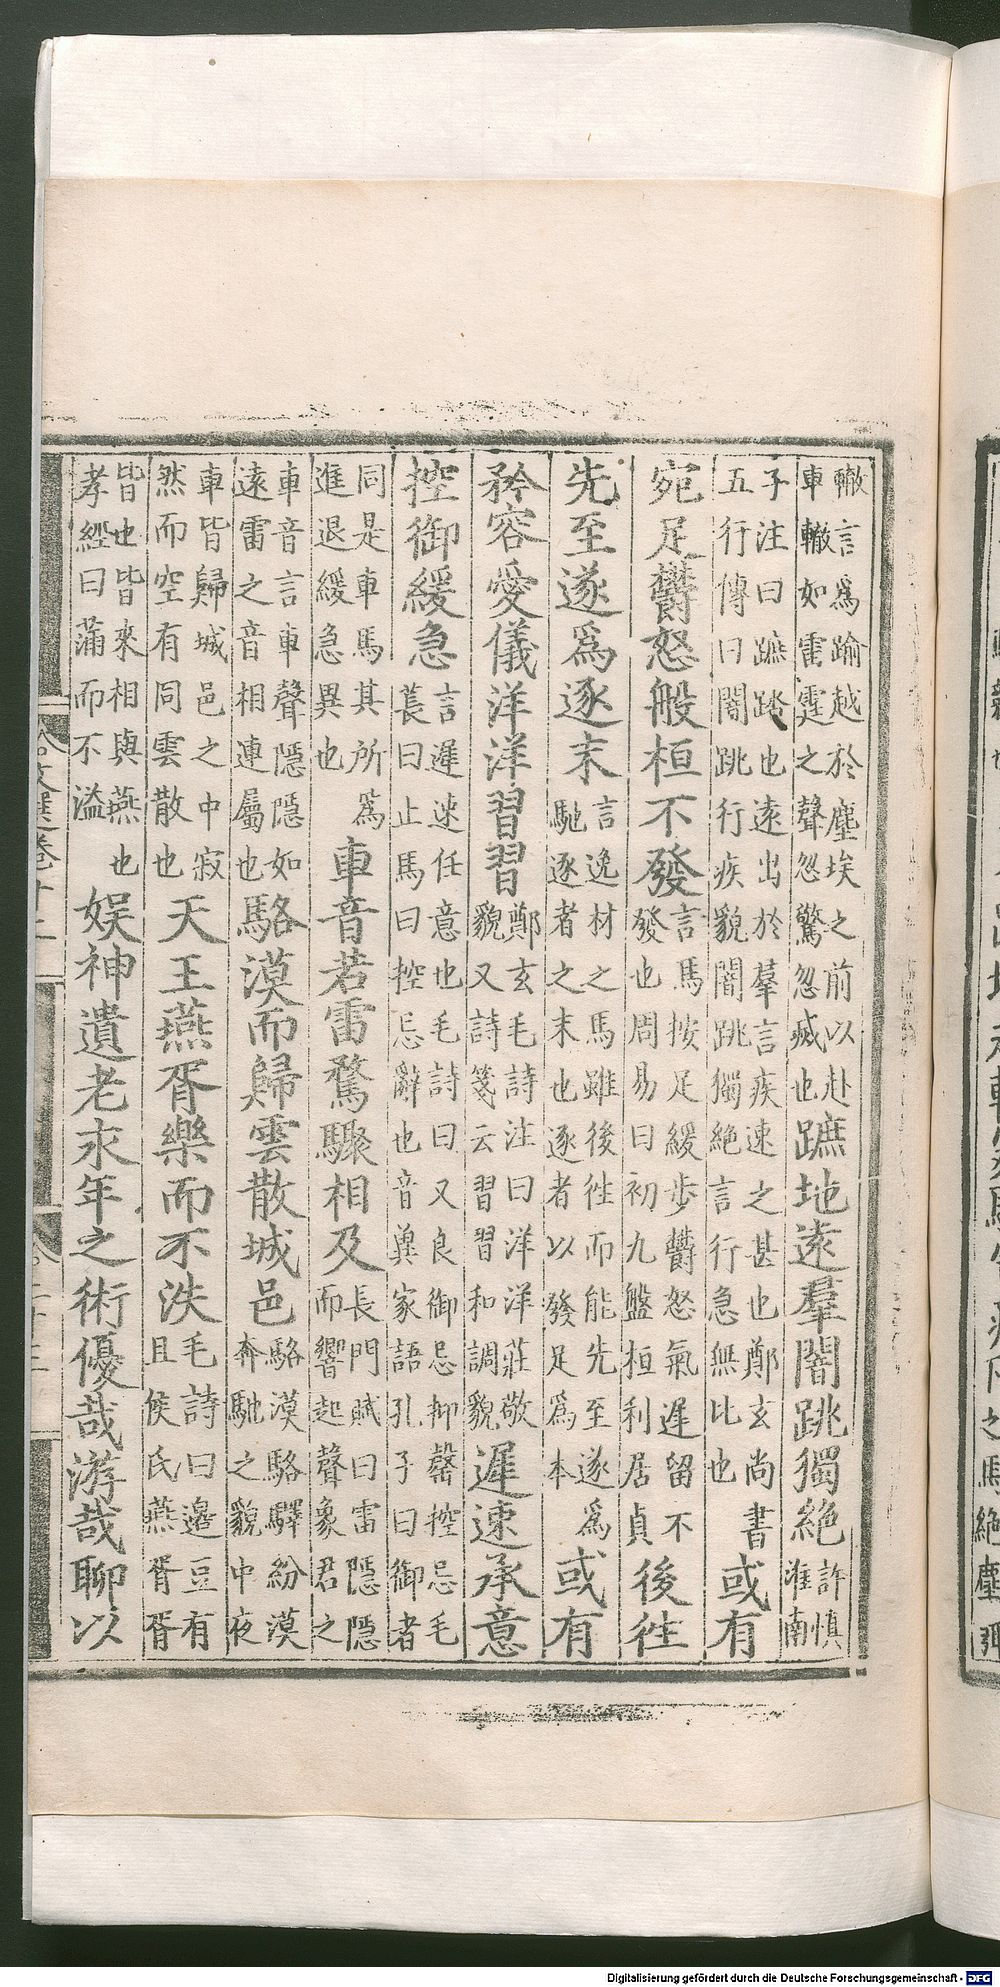 轍言爲踰越於塵埃之前以赴
車轍如雷霆之聲忽驚忽㓕也
蹠地遠羣闇跳獨絶
許慎
淮南
子注曰蹠踏也遠出於羣言疾速之甚也鄭玄尚書
五行傳曰闇跳行疾貌闇跳獨絶言行急無比也
或有
宛足欝怒般桓不發
言馬按足緩步欝怒氣遲留不
發也周易曰初九盤桓利居貞
後徃
先至遂爲逐末
言逸材之馬雖後徃而能先至遂爲
馳逐者之末也逐者以發足爲本
或有
矜容愛儀洋洋習習
鄭玄毛詩注曰洋洋莊敬
貌又詩箋云習習和調貌
遲速承意
控御緩急
言遲速任意也毛詩曰又良御忌抑罄控忌毛
萇曰止馬曰控忌辭也音冀家語孔子曰御者
同是車馬其所爲
進退緩急異也
車音若雷騖驟相及
長門賦曰雷隱隱
而響起聲象君之
車音言車聲隱隱如
遠雷之音相連屬也
駱漠而歸雲散城邑
駱漠駱驛紛漠
奔馳之貌中夜
車皆歸城邑之中寂
然而空有同雲散也
天王燕胥樂而不泆
毛詩曰邊豆有
且侯氏燕胥胥
皆也皆來相與燕也
孝經曰蒲而不溢
娱神遺老永年之術優哉游哉聊以
文選卷十二
Digitalisierung gefördert durch die Deutsche Forschungsgemeinschaft - DFG